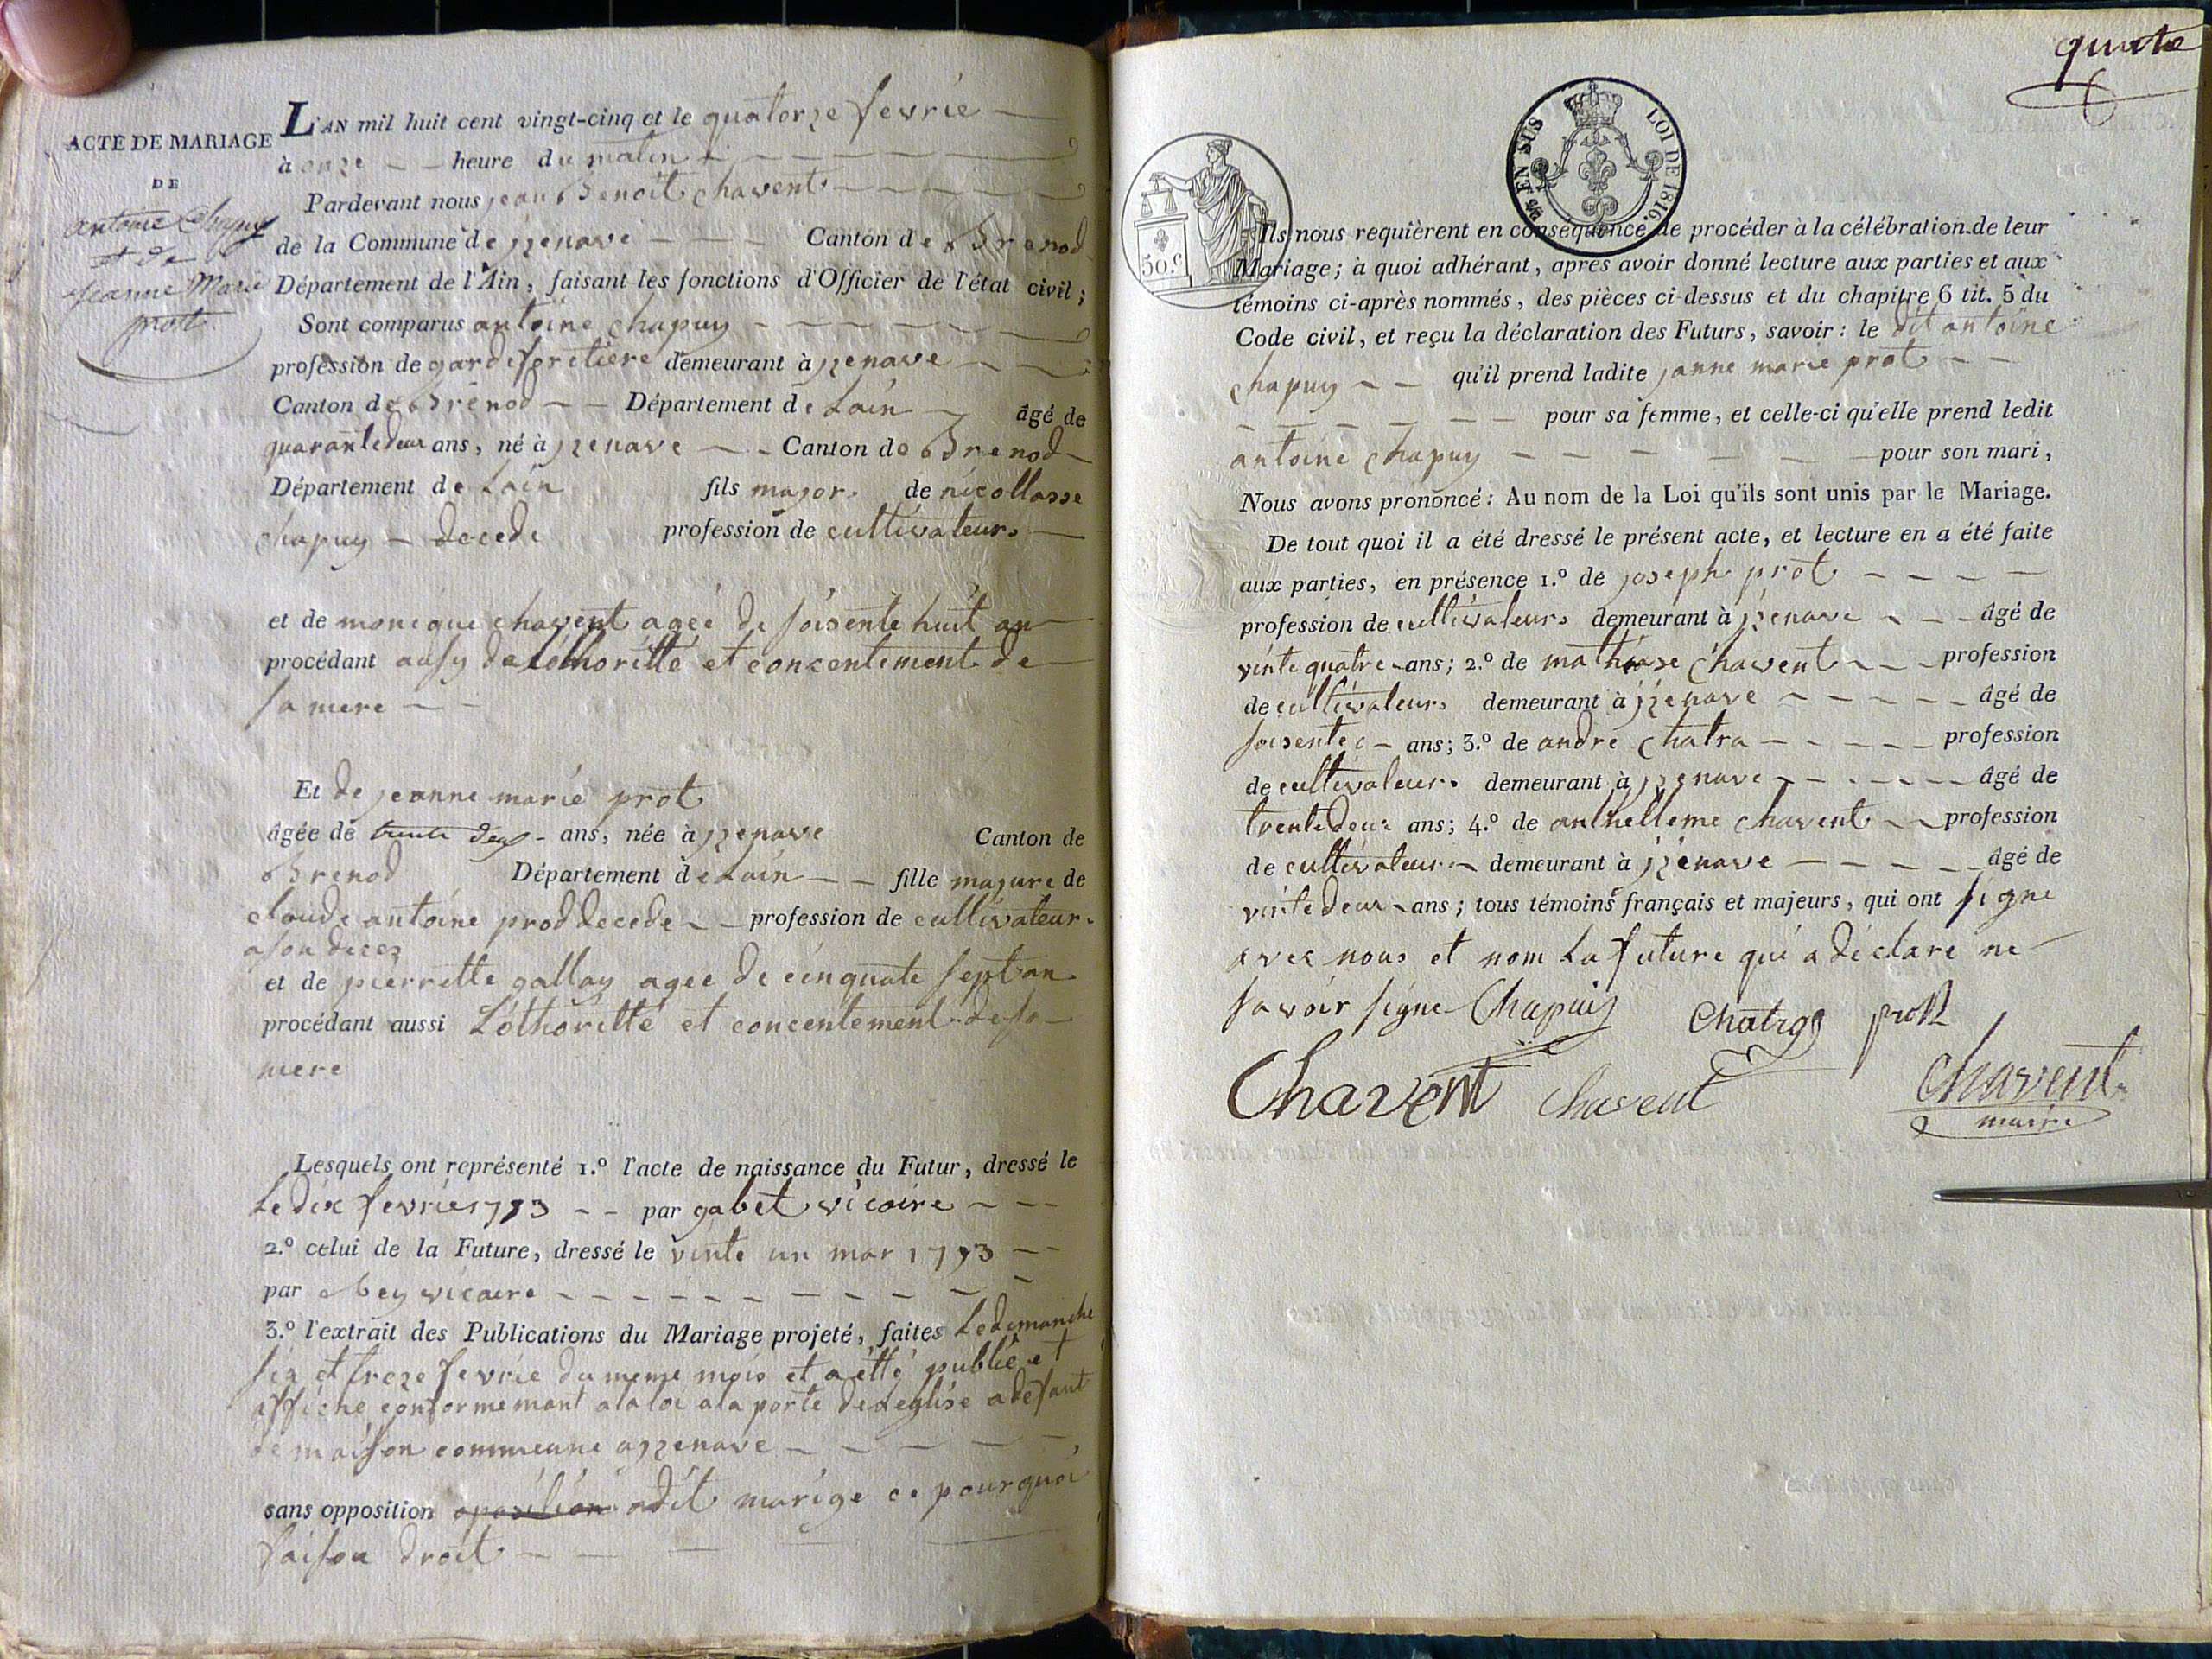 ACTE DE MARIAGE
DE
antoine Chapuy
et de
Jeanne Marie
prost
L'AN mil huit cent vingt-cinq et le quatorze fevrie
à onze heure du matin
Pardevant nous jean Benoit chavent
de la Commune de izenave Canton de Brenod
Département de l'Ain, faisant les fonctions d'Officier de l'état civil;
Sont comparus antoine chapuy
profession de garde foretiere demeurant à izenave
Canton de Brenod Département de Lain âgé de
quarante deux ans, né à izenave Canton de Brenod
Département de Lain fils major de nicollasse
chapuy decede profession de cultivateur
et de monique chavent agée de soisente huit an
procédant ausy de Lothoritté et concentement de
sa mere
Et de jeanne marie prot
âgée de trente deux ans, née à izenave Canton de
Brenod Département de Lain fille majure de
claude antoine prod decede profession de cultivateur
a son dicez
et de pierrette gallay agee de cinquate sept an
procédant aussi Lothoritté et concentement de sa
mere
Lesquels ont représenté 1.º l'acte de naissance du Futur, dressé le
Le dix fevrier 1783 par gabet vicaire
2.º celui de la Future, dressé le vinte un mar 1793
par Bey vicaire
3.º l'extrait des Publications du Mariage projeté, faites Le dimanche
six et treze fevrie du meme mois et a étté publié et
affiché conformemant a la loi a la porte de Leglise a defaut
de maison commeune a izenave
sans opposition oposition adit marige ce pourquoi
faison droit
quinte
EN SUS
LOI DE 1816.
50.c
Ils nous requièrent en conséquence de procéder à la célébration de leur
Mariage; à quoi adhérant, après avoir donné lecture aux parties et aux
témoins ci-après nommés, des pièces ci-dessus et du chapitre 6 tit. 5 du
Code civil, et reçu la déclaration des Futurs, savoir: le dit antoine
chapuy qu'il prend ladite janne marie prot
pour sa femme, et celle-ci qu'elle prend ledit
antoine chapuy pour son mari,
Nous avons prononcé: Au nom de la Loi qu'ils sont unis par le Mariage.
De tout quoi il a été dressé le présent acte, et lecture en a été faite
aux parties, en présence 1.º de joseph prot
profession de cultivateur demeurant à izenave âgé de
vinte quatre ans; 2.º de mathiase chavent profession
de cultivateur demeurant à izenave âgé de
soisente ans; 3.º de andré chatra profession
de cultivateur demeurant à izenave âgé de
trente deux ans; 4.º de anthelleme chavent profession
de cultivateur demeurant à izenave âgé de
vinte deux ans; tous témoins français et majeurs, qui ont signe
avec nous et nom La future qui a déclare ne
savoir signe Chapuis Chatra prost
Chavent chavent chavent
maire